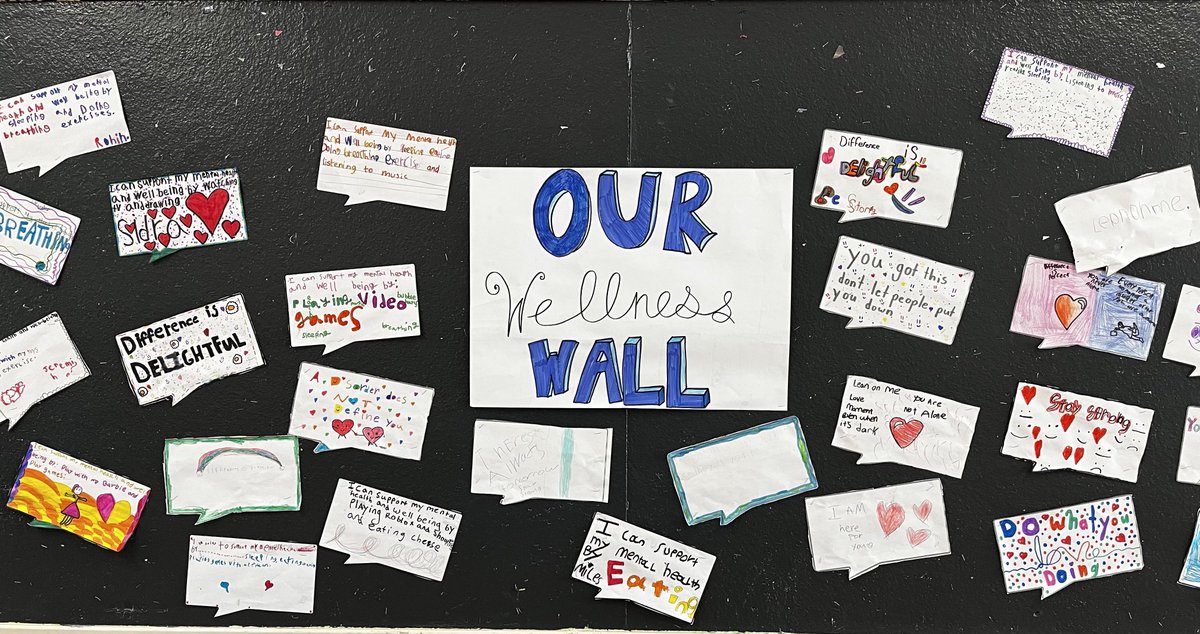 OUR
Wellness
WALL
I can support my mental
health and well being by
sleeping and Doing
breathing exercises.
Rohin.
BREATHING
I can support my mental health
and well being by watching
tv and drawing
Sidra
I can support my mental health
and well being by
Doing breathing exercise and
listening to music
I can support my mental health
and well being by:
Playing video
games
sleeping
breathing
Difference is
DELIGHTFUL
A Disorder does
NOT
Define
you
being by: Play with my Barbie and
Play games:
I can support my mental
health and well being by
Playing Roblox and
and eating cheese
I can support
my mental health
By
Miles
Eating
Difference is
DELIGHTFUL
Be
Strong
you got this
don't let people put
you down
Lean on me
You Are
Not Alone
Love
Moment
even when
it's dark
I AM
here
for
you
I can support my mental health
and well being by listening to music
Stay Strong
Do what you
love
Doing